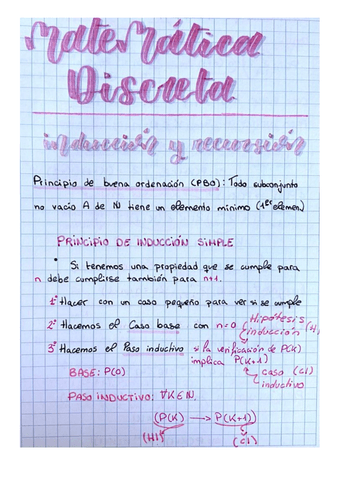 Matemática
Discreta
inducción y recursión
Principio de buena ordenación (PBO): Todo subconjunto
no vacio A de N tiene un elemento mínimo (1er elemen)
PRINCIPIO DE INDUCCIÓN SIMPLE
• Si tenemos una propiedad que se cumple para
n debe cumplirse también para n+1.
1º Hacer con un caso pequeño para ver si se cumple
2º Hacemos el Caso base con n=0 Hipótesis inducción (H)
3º Hacemos el Paso inductivo si la verificación de P(K)
implica P(K+1)
BASE: P(0) caso (CI)
inductivo
PASO INDUCTIVO: ∀K∈N,
(P(K) → P(K+1))
(HI) (CI)